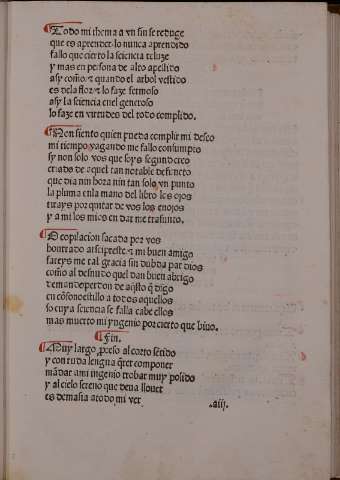 Todo mi thema a vn fin se reduge
que es aprender lo nunca aprendido
fallo que cierto la sciencia reluze
y mas en persona de alto apellido
asy cono ⁊ quando el arbol vestido
es dela flor ⁊ lo faze fermoso
asy la sciencia enel generoso
lo faze en virtudes del todo complido.
Non siento quien pueda complir mi deseo
mi tiempo vagando me fallo consumpto
sy non solo vos que soys segund creo
criado de aquel tan notable defuncto
que dia nin hora nin tan solo vn punto
la pluma enla mano del libro los ojos
tirays por quitar de vos los enojos
y a mi los mios en dar me trasunto.
O copilacion sacada por vos
honrado arcipreste ⁊ mi buen amigo
fareys me tal gracia sin dubda par dios
como al desnudo quel dan buen abrigo
demande perdon de aq̄sto q̄ digo
en cōsono estillo a todos aquellos
so cuya sciencia se falla cabe ellos
mas muerto mi yngenio por cierto que biuo.
Fin.
Muy largo proceso al corto sētido
y con ruda lengua q̄rer componer
mādar a mi ingenio trobar muy polido
y al cielo sereno que deua llouer
es demasia a todo mi ver
.aiij.